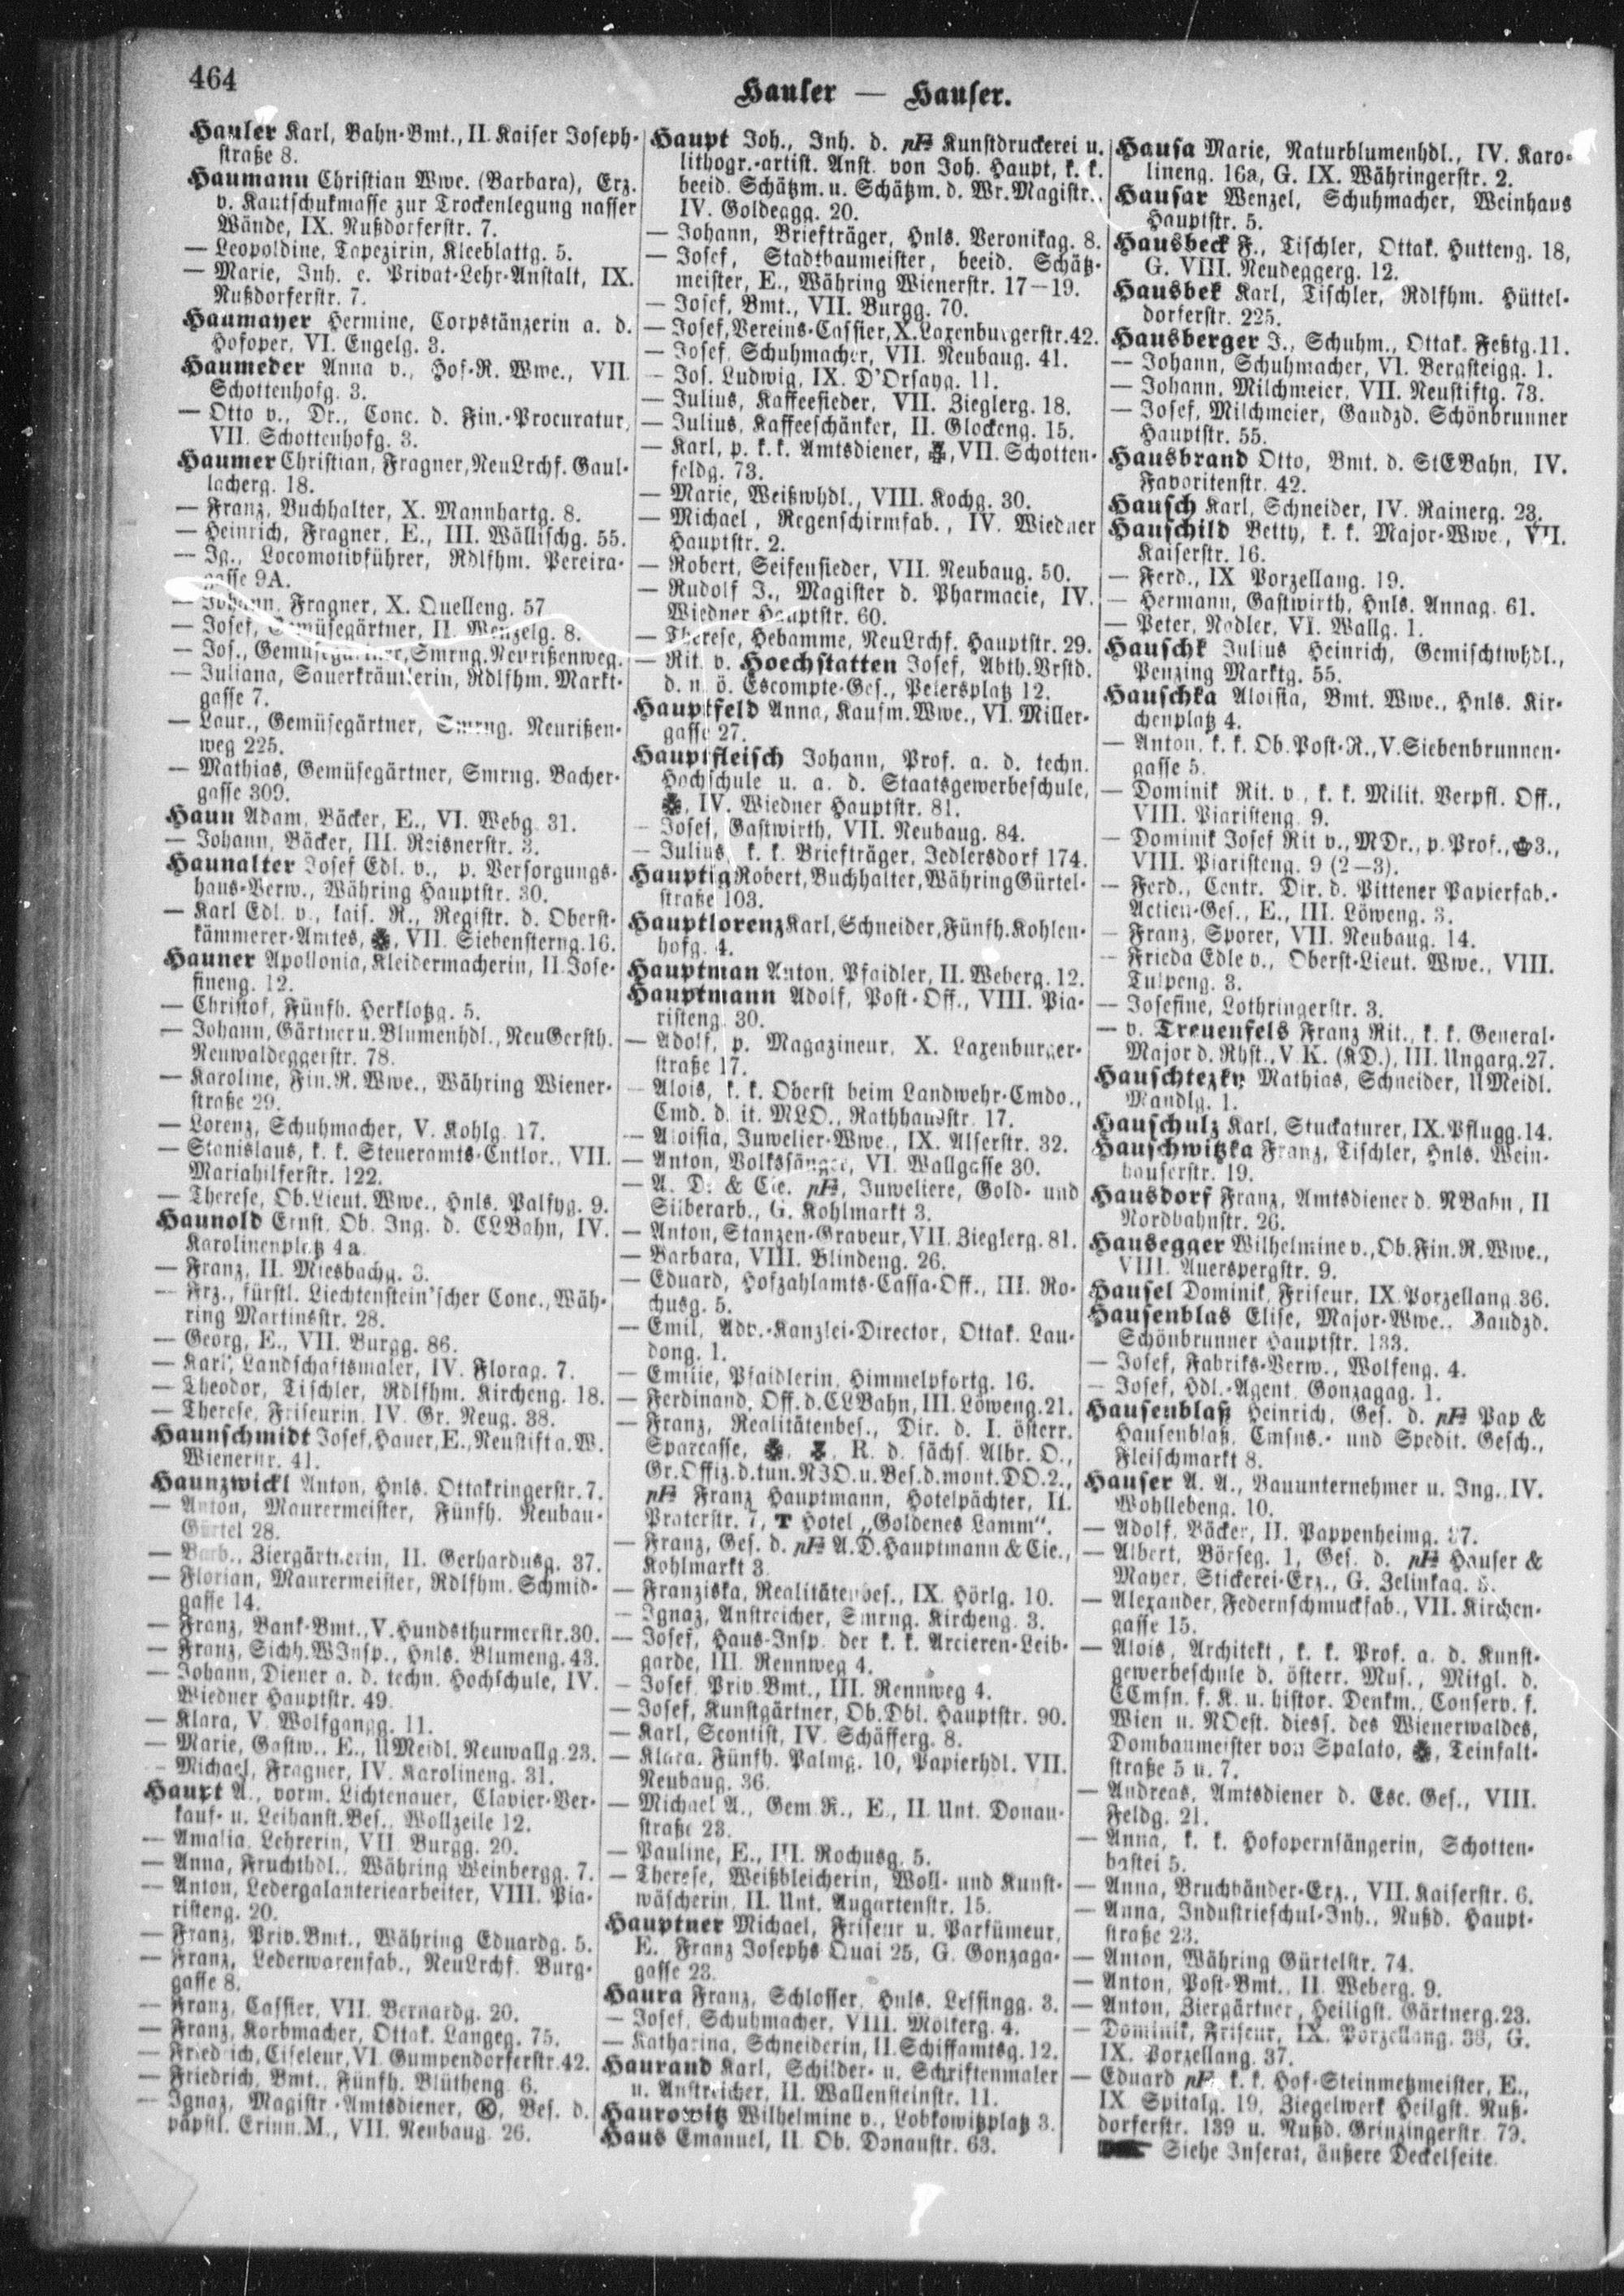 464
Hauler — Hauser.
Hauler Karl, Bahn-Bmt., II. Kaiser Joseph-
straße 8.
Haumann Christian Wwe. (Barbara), Erz.
v. Kautschukmasse zur Trockenlegung nasser
Wände, IX. Nußdorferstr. 7.
— Leopoldine, Tapezirin, Kleeblattg. 5.
— Marie, Inh. e. Privat-Lehr-Anstalt, IX.
Nußdorferstr. 7.
Haumayer Hermine, Corpstänzerin a. d.
Hofoper, VI. Engelg. 3.
Haumeder Anna v., Hof-R. Wwe., VII.
Schottenhofg. 3.
— Otto v., Dr., Conc. d. Fin.-Procuratur,
VII. Schottenhofg. 3.
Haumer Christian, Fragner, NeuLrchf. Gaul-
lacherg. 18.
— Franz, Buchhalter, X. Mannhartg. 8.
— Heinrich, Fragner, E., III. Wällischg. 55.
— Ig., Locomotivführer, Rdlfhm. Pereira-
gasse 9A.
— Johann, Fragner, X. Quelleng. 57
— Josef, Gemüsegärtner, II. Wenzelg. 8.
— Jos., Gemüsegärtner, Smrng. Neurißenweg.
— Juliana, Sauerkräutlerin, Rdlfhm. Markt-
gasse 7.
— Laur., Gemüsegärtner, Smrng. Neurißen-
weg 225.
— Mathias, Gemüsegärtner, Smrng. Bacher-
gasse 309.
Haun Adam, Bäcker, E., VI. Webg. 31.
— Johann, Bäcker, III. Reisnerstr. 3.
Haunalter Josef Edl. v., p. Versorgungs-
haus-Verw., Währing Hauptstr. 30.
— Karl Edl. v., kais. R., Registr. d. Oberst-
kämmerer-Amtes, VII. Siebensterng. 16.
Hauner Apollonia, Kleidermacherin, II. Jose-
fineng. 12.
— Christof, Fünfh. Herklotzg. 5.
— Johann, Gärtner u. Blumenhdl., NeuGersth.
Neuwaldeggerstr. 78.
— Karoline, Fin. R. Wwe., Währing Wiener-
straße 29.
— Lorenz, Schuhmacher, V. Kohlg. 17.
— Stanislaus, k. k. Steueramts-Cntlor., VII.
Mariahilferstr. 122.
— Therese, Ob. Lieut. Wwe., Hnls. Palfyg. 9.
Haunold Ernst, Ob. Ing. d. CLBahn, IV.
Karolinenplatz 4a.
— Franz, II. Miesbachg. 3.
— Frz., fürstl. Liechtenstein'scher Conc., Wäh-
ring Martinsstr. 28.
— Georg, E., VII. Burgg. 86.
— Karl, Landschaftsmaler, IV. Florag. 7.
— Theodor, Tischler, Rdlfhm. Kircheng. 18.
— Therese, Friseurin, IV. Gr. Neug. 38.
Haunschmidt Josef, Hauer, E., Neustift a. W.
Wienerstr. 41.
Haunzwickl Anton, Hnls. Ottakringerstr. 7.
— Anton, Maurermeister, Fünfh. Neubau-
Gürtel 28.
— Barb., Ziergärtnerin, II. Gerhardusg. 37.
— Florian, Maurermeister, Rdlfhm. Schmid-
gasse 14.
— Franz, Bank-Bmt., V. Hundsthurmerstr. 30.
— Franz, Sichh. WInsp., Hnls. Blumeng. 43.
— Johann, Diener a. d. techn. Hochschule, IV.
Wiedner Hauptstr. 49.
— Klara, V. Wolfgangg. 11.
— Marie, Gastw., E., UMeidl. Neuwallg. 23.
— Michael, Fragner, IV. Karolineng. 31.
Haupt A., vorm. Lichtenauer, Clavier-Ver-
kauf- u. Leihanst. Bes., Wollzeile 12.
— Amalia, Lehrerin, VII. Burgg. 20.
— Anna, Fruchthdl., Währing Weinbergg. 7.
— Anton, Ledergalanteriearbeiter, VIII. Pia-
risteng. 20.
— Franz, Priv. Bmt., Währing Eduardg. 5.
— Franz, Lederwarenfab., NeuLrchf. Burg-
gasse 8.
— Franz, Cassier, VII. Bernardg. 20.
— Franz, Korbmacher, Ottak. Langeg. 75.
— Friedrich, Ciseleur, VI. Gumpendorferstr. 42.
— Friedrich, Bmt., Fünfh. Blütheng. 6.
— Ignaz, Magistr.-Amtsdiener, Ⓚ, Bes. d.
päpstl. Erinn. M., VII. Neubaug. 26.
Haupt Joh., Inh. d. pF Kunstdruckerei u.
lithogr.-artist. Anst. von Joh. Haupt, k. k.
beeid. Schätzm. u. Schätzm. d. Wr. Magistr.,
IV. Goldeggg. 20.
— Johann, Briefträger, Hnls. Veronikag. 8.
— Josef, Stadtbaumeister, beeid. Schätz-
meister, E., Währing Wienerstr. 17—19.
— Josef, Bmt., VII. Burgg. 70.
— Josef, Vereins-Cassier, X. Laxenburgerstr. 42.
— Josef, Schuhmacher, VII. Neubaug. 41.
— Jos. Ludwig, IX. D'Orsayg. 11.
— Julius, Kaffeesieder, VII. Zieglerg. 18.
— Julius, Kaffeeschänker, II. Glockeng. 15.
— Karl, p. k. k. Amtsdiener, VII. Schotten-
feldg. 73.
— Marie, Weißwhdl., VIII. Kochg. 30.
— Michael, Regenschirmfab., IV. Wiedner
Hauptstr. 2.
— Robert, Seifensieder, VII. Neubaug. 50.
— Rudolf J., Magister d. Pharmacie, IV.
Wiedner Hauptstr. 60.
— Therese, Hebamme, NeuLrchf. Hauptstr. 29.
— Rit. v. Hoechstatten Josef, Abth. Vrstd.
d. n. ö. Escompte-Ges., Petersplatz 12.
Hauptfeld Anna, Kaufm. Wwe., VI. Miller-
gasse 27.
Hauptfleisch Johann, Prof. a. d. techn.
Hochschule u. a. d. Staatsgewerbeschule,
IV. Wiedner Hauptstr. 81.
— Josef, Gastwirth, VII. Neubaug. 84.
— Julius, k. k. Briefträger, Jedlersdorf 174.
Hauptig Robert, Buchhalter, Währing Gürtel-
straße 103.
Hauptlorenz Karl, Schneider, Fünfh. Kohlen-
hofg. 4.
Hauptman Anton, Pfaidler, II. Weberg. 12.
Hauptmann Adolf, Post-Off., VIII. Pia-
risteng. 30.
— Adolf, p. Magazineur, X. Laxenburger-
straße 17.
— Alois, k. k. Oberst beim Landwehr-Cmdo.,
Cmd. d. it. MLO., Rathhausstr. 17.
— Aloisia, Juwelier-Wwe., IX. Alserstr. 32.
— Anton, Volkssänger, VI. Wallgasse 30.
— A. D. & Cie. pF, Juweliere, Gold- und
Silberarb., G. Kohlmarkt 3.
— Anton, Stanzen-Graveur, VII. Zieglerg. 81.
— Barbara, VIII. Blindeng. 26.
— Eduard, Hofzahlamts-Cassa-Off., III. Ro-
chusg. 5.
— Emil, Adv.-Kanzlei-Director, Ottak. Lau-
dong. 1.
— Emilie, Pfaidlerin, Himmelpfortg. 16.
— Ferdinand, Off. d. CLBahn, III. Löweng. 21.
— Franz, Realitätenbes., Dir. d. I. österr.
Sparcasse, R. d. sächs. Albr. O.,
Gr. Offiz. d. tun. NJO. u. Bes. d. mont. DO. 2.,
pF Franz Hauptmann, Hotelpächter, II.
Praterstr. 7, T Hotel „Goldenes Lamm".
— Franz, Ges. d. pF A. D. Hauptmann & Cie.,
Kohlmarkt 3.
— Franziska, Realitätenbes., IX. Hörlg. 10.
— Ignaz, Anstreicher, Smrng. Kircheng. 3.
— Josef, Haus-Insp. der k. k. Arcieren-Leib-
garde, III. Rennweg 4.
— Josef, Priv. Bmt., III. Rennweg 4.
— Josef, Kunstgärtner, Ob. Dbl. Hauptstr. 90.
— Karl, Scontist, IV. Schäfferg. 8.
— Klara, Fünfh. Palmg. 10, Papierhdl. VII.
Neubaug. 36.
— Michael A., Gem. R., E., II. Unt. Donau-
straße 23.
— Pauline, E., III. Rochusg. 5.
— Therese, Weißbleicherin, Woll- und Kunst-
wäscherin, II. Unt. Augartenstr. 15.
Hauptner Michael, Friseur u. Parfümeur,
E. Franz Josephs Quai 25, G. Gonzaga-
gasse 23.
Haura Franz, Schlosser, Hnls. Lessingg. 3.
— Josef, Schuhmacher, VIII. Molkerg. 4.
— Katharina, Schneiderin, II. Schiffamtsg. 12.
Haurand Karl, Schilder- u. Schriftenmaler
u. Anstreicher, II. Wallensteinstr. 11.
Haurowitz Wilhelmine v., Lobkowitzplatz 3.
Haus Emanuel, II. Ob. Donaustr. 63.
Hausa Marie, Naturblumenhdl., IV. Karo-
lineng. 16a, G. IX. Währingerstr. 2.
Hausar Wenzel, Schuhmacher, Weinhaus
Hauptstr. 5.
Hausbeck F., Tischler, Ottak. Hutteng. 18,
G. VIII. Neudeggerg. 12.
Hausbek Karl, Tischler, Rdlfhm. Hüttel-
dorferstr. 225.
Hausberger J., Schuhm., Ottak. Feßtg. 11.
— Johann, Schuhmacher, VI. Bergsteigg. 1.
— Johann, Milchmeier, VII. Neustiftg. 73.
— Josef, Milchmeier, Gaudzd. Schönbrunner
Hauptstr. 55.
Hausbrand Otto, Bmt. d. StEBahn, IV.
Favoritenstr. 42.
Hausch Karl, Schneider, IV. Rainerg. 23.
Hauschild Betty, k. k. Major-Wwe., VII.
Kaiserstr. 16.
— Ferd., IX Porzellang. 19.
— Hermann, Gastwirth, Hnls. Annag. 61.
— Peter, Nadler, VI. Wallg. 1.
Hauschk Julius Heinrich, Gemischtwhdl.,
Penzing Marktg. 55.
Hauschka Aloisia, Bmt. Wwe., Hnls. Kir-
chenplatz 4.
— Anton, k. k. Ob. Post-R., V. Siebenbrunnen-
gasse 5.
— Dominik Rit. v., k. k. Milit. Verpfl. Off.,
VIII. Piaristeng. 9.
— Dominik Josef Rit v., MDr., p. Prof., 3.,
VIII. Piaristeng. 9 (2—3).
— Ferd., Centr. Dir. d. Pittener Papierfab.-
Actien-Ges., E., III. Löweng. 3.
— Franz, Sporer, VII. Neubaug. 14.
— Frieda Edle v., Oberst-Lieut. Wwe., VIII.
Tulpeng. 3.
— Josefine, Lothringerstr. 3.
— v. Treuenfels Franz Rit., k. k. General-
Major d. Rhst., V. K. (KD.), III. Ungarg. 27.
Hauschtezky Mathias, Schneider, UMeidl.
Mandlg. 1.
Hauschulz Karl, Stuckaturer, IX. Pflugg. 14.
Hauschwitzka Franz, Tischler, Hnls. Wein-
hauserstr. 19.
Hausdorf Franz, Amtsdiener d. NBahn, II
Nordbahnstr. 26.
Hausegger Wilhelmine v., Ob. Fin. R. Wwe.,
VIII. Auerspergstr. 9.
Hausel Dominik, Friseur, IX. Porzellang. 36.
Hausenblas Elise, Major-Wwe., Gaudzd.
Schönbrunner Hauptstr. 133.
— Josef, Fabriks-Verw., Wolfeng. 4.
— Josef, Hdl.-Agent, Gonzagag. 1.
Hausenblaß Heinrich, Ges. d. pF Pap &
Hausenblaß, Cmsns.- und Spedit. Gesch.,
Fleischmarkt 8.
Hauser A. A., Bauunternehmer u. Ing., IV.
Wohllebeng. 10.
— Adolf, Bäcker, II. Pappenheimg.
— Albert, Börseg. 1, Ges. d. pF Hauser &
Mayer, Stickerei-Erz., G. Zelinkag.
— Alexander, Federnschmuckfab., VII. Kirchen-
gasse 15.
— Alois, Architekt, k. k. Prof. a. d. Kunst-
gewerbeschule d. österr. Mus., Mitgl. d.
CCmsn. f. K. u. histor. Denkm., Conserv. f.
Wien u. NOest. diess. des Wienerwaldes,
Dombaumeister von Spalato, Teinfalt-
straße 5 u. 7.
— Andreas, Amtsdiener d. Esc. Ges., VIII.
Feldg. 21.
— Anna, k. k. Hofopernsängerin, Schotten-
bastei 5.
— Anna, Bruchbänder-Erz., VII. Kaiserstr. 6.
— Anna, Industrieschul-Inh., Nußd. Haupt-
straße 23.
— Anton, Währing Gürtelstr. 74.
— Anton, Post-Bmt., II. Weberg. 9.
— Anton, Ziergärtner, Heiligst. Gärtnerg. 23.
— Dominik, Friseur, IX. Porzellang. 38, G.
IX. Porzellang. 37.
— Eduard pF, k. k. Hof-Steinmetzmeister, E.,
IX. Spitalg. 19, Ziegelwerk Heilgst. Nuß-
dorferstr. 139 u. Nußd. Grinzingerstr. 79.
Siehe Inserat, äußere Deckelseite.